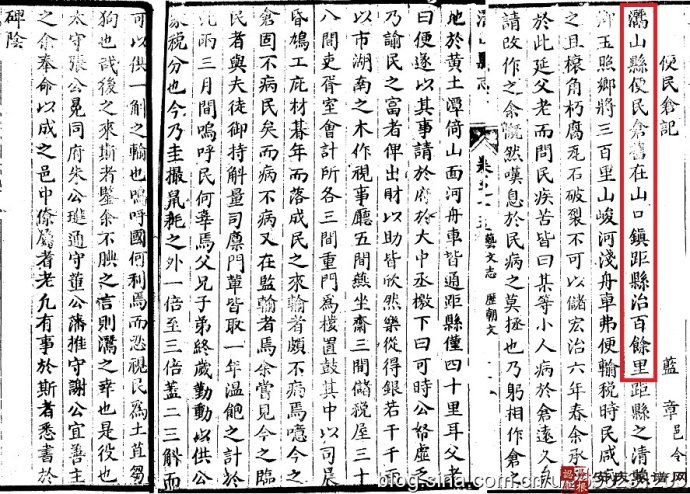 便民倉記
藍章邑令
灊山縣便民倉舊在山口鎮距縣治百餘里距縣之清
御玉照鄉將三百里山峻河淺舟車弗便輸税時民咸
之且榱角朽腐瓦石破裂不可以儲宏治六年春余承
於此延父老而問民疾苦皆曰某等小人病於倉遠久
請改作之余慨然嘆息於民病之莫拯也乃躬相作倉
灊山縣志 卷之二十 藝文志 歷朝文
地於黃土潭倚山面河舟車皆通距縣僅四十里耳父老
曰便遂以其事請於府於大中丞檄下曰可時公帑虛乏
乃諭民之富者俾出財以助皆欣然樂從得銀若干
以市湖南之木作視事廳五間燕坐齋三間儲税屋三十
八間吏胥室會計所各三間重門爲樓置鼓其中以司晨
昏鳩工庀材朞年而落成民之來輸者頗不病焉噫今之
倉固不病民矣而病不病又在監輸者焉余嘗見今之臨
民者與夫徒御持斛量司廩門蓽皆取一年溫飽之計於
此兩三月間嗚呼民何辜焉父兄子弟終歲勤動以供公
家税分也今乃圭撮鼠耗之外一倍至三倍蓋二三斛而
可以供一斛之輸也嗚呼國何利焉而忍視民爲土苴芻
狗也哉後之來斯者鑒余不腆之言則灊之幸也是役也
太守張公晃同府朱公璡通守董公藩推守謝公宜善主
之余奉命以成之邑中僚屬耆老凡有事於斯者悉書於
碑陰